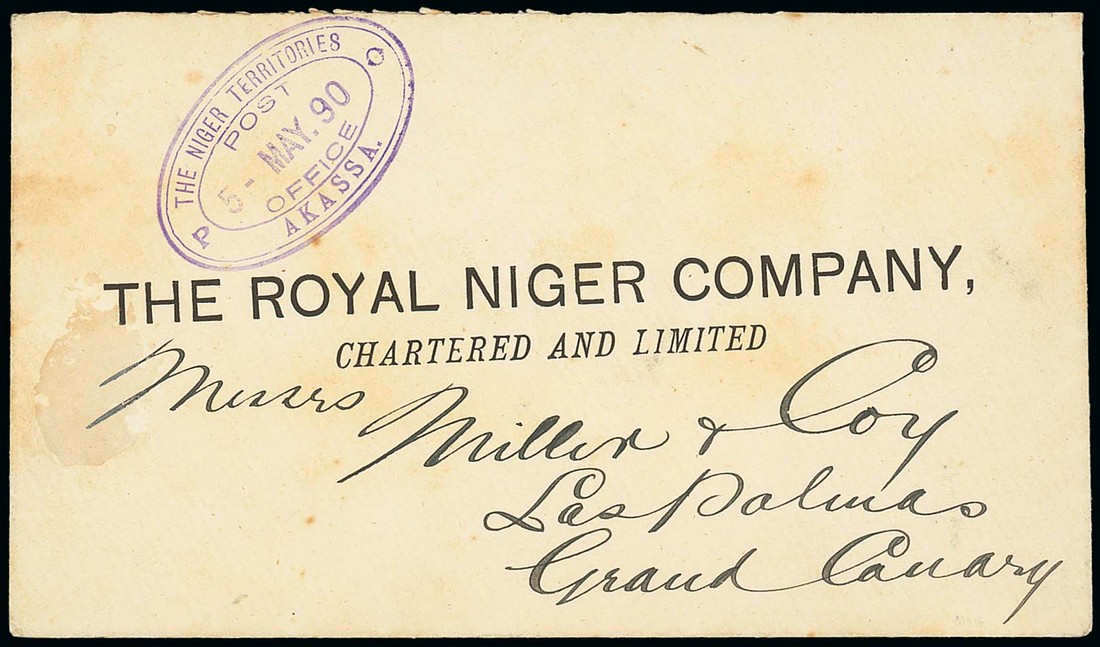 THE NIGER TERRITORIES
POST
5 - MAY. 90
OFFICE
AKASSA.
P O
THE ROYAL NIGER COMPANY,
CHARTERED AND LIMITED
Messrs Miller & Coy
Las Palmas
Grand Canary